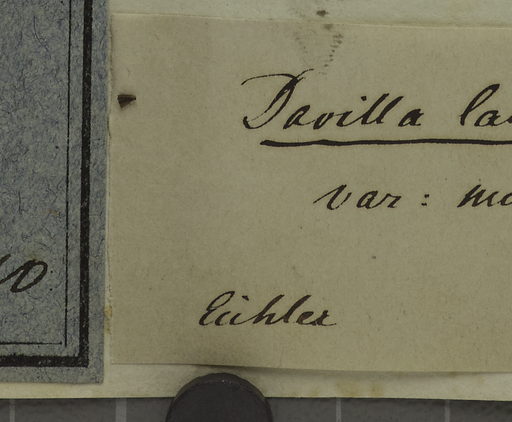 Davilla la
var: m
Eichler
10